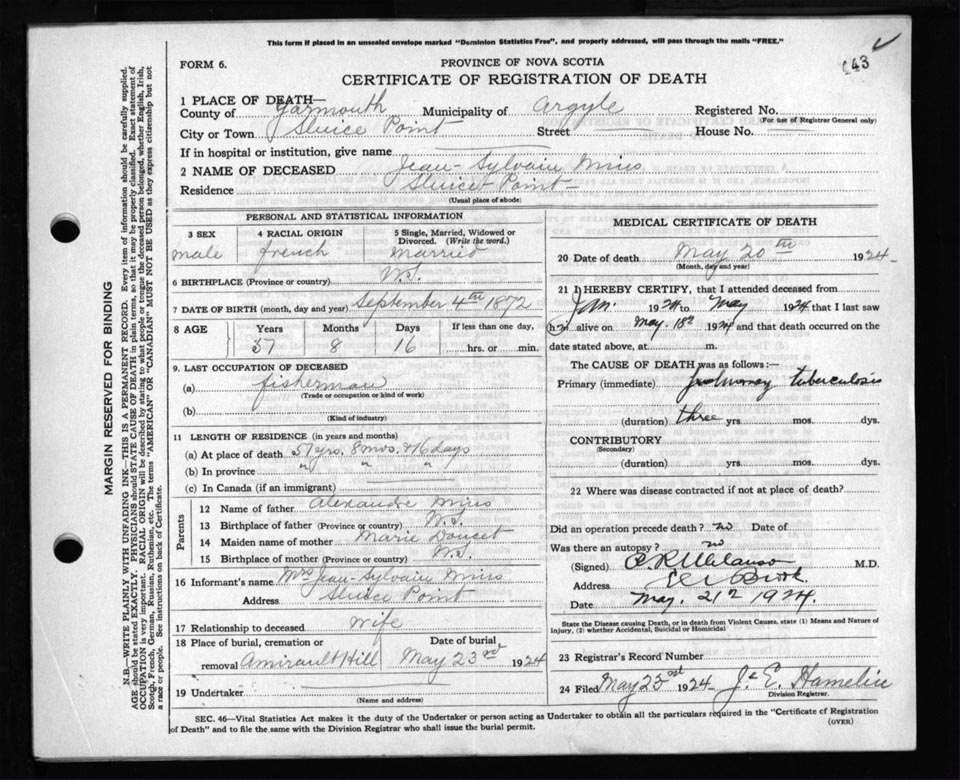 This form if placed in an unsealed envelope marked "Dominion Statistics Free", and properly addressed, will pass through the mails "FREE."
143
FORM 6.
PROVINCE OF NOVA SCOTIA
CERTIFICATE OF REGISTRATION OF DEATH
1 PLACE OF DEATH—
County of Yarmouth Municipality of Argyle Registered No.
(For use of Registrar General only)
City or Town Sluice Point Street House No.
If in hospital or institution, give name
2 NAME OF DECEASED Jean-Sylvain Mius
Residence Sluice Point
(Usual place of abode)
PERSONAL AND STATISTICAL INFORMATION
3 SEX 4 RACIAL ORIGIN 5 Single, Married, Widowed or Divorced. (Write the word.)
male french married
6 BIRTHPLACE (Province or country) N.S.
7 DATE OF BIRTH (month, day and year) September 4th 1872
8 AGE Years Months Days If less than one day,
57 8 16 hrs. or min.
9. LAST OCCUPATION OF DECEASED
(a) fisherman
(Trade or occupation or kind of work)
(b)
(Kind of industry)
11 LENGTH OF RESIDENCE (in years and months)
(a) At place of death 57 yrs. 8 mos. + 16 days
(b) In province " " "
(c) In Canada (if an immigrant)
Parents
12 Name of father Alexandre Mius
13 Birthplace of father (Province or country) N.S.
14 Maiden name of mother Marie Doucet
15 Birthplace of mother (Province or country) N.S.
16 Informant's name Mrs Jean-Sylvain Mius
Address Sluice Point
17 Relationship to deceased wife
18 Place of burial, cremation or removal Amirault Hill
Date of burial May 23rd 1924
19 Undertaker
(Name and address)
MEDICAL CERTIFICATE OF DEATH
20 Date of death May 20th 1924
(Month, day and year)
21 I HEREBY CERTIFY, that I attended deceased from
Jan. 1924 to May 1924 that I last saw
him alive on May 18th 1924 and that death occurred on the
date stated above, at m.
The CAUSE OF DEATH was as follows:—
Primary (immediate) tuberculosis
(duration) three yrs mos. dys.
CONTRIBUTORY
(Secondary)
(duration) yrs. mos. dys.
22 Where was disease contracted if not at place of death?
Did an operation precede death? no Date of
Was there an autopsy? no
(Signed) M.D.
Address
Date May. 21st 1924.
State the Disease causing Death, or in death from Violent Causes, state (1) Means and Nature of
injury, (2) whether Accidental, Suicidal or Homicidal
23 Registrar's Record Number
24 Filed May 23rd 1924 J. E. Hamelin
Division Registrar.
SEC. 46—Vital Statistics Act makes it the duty of the Undertaker or person acting as Undertaker to obtain all the particulars required in the "Certificate of Registration
of Death" and to file the same with the Division Registrar who shall issue the burial permit.
(OVER)
MARGIN RESERVED FOR BINDING
N.B.—WRITE PLAINLY WITH UNFADING INK—THIS IS A PERMANENT RECORD. Every item of information should be carefully supplied.
AGE should be stated EXACTLY. PHYSICIANS should STATE CAUSE OF DEATH in plain terms, so that it may be properly classified. Exact statement of
OCCUPATION is very important. RACIAL ORIGIN will be described by stating to what people or tongue the deceased person belonged, whether English, Irish,
Scotch, French, German, Russian, Ruthenian, etc. The terms "AMERICAN" OR "CANADIAN" MUST NOT BE USED as they express citizenship but not
a race or people. See instructions on back of Certificate.